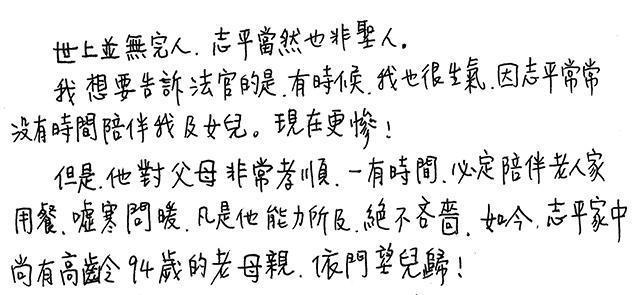 世上並無完人.志平當然也非聖人。
我想要告訴法官的是,有時候,我也很生氣,因志平常常
没有時間陪伴我及女兒。現在更慘!
但是,他對父母非常孝順,一有時間,必定陪伴老人家
用餐、噓寒問暖,凡是他能力所及,絕不吝嗇,如今,志平家中
尚有高齡94歲的老母親,依門望兒歸!